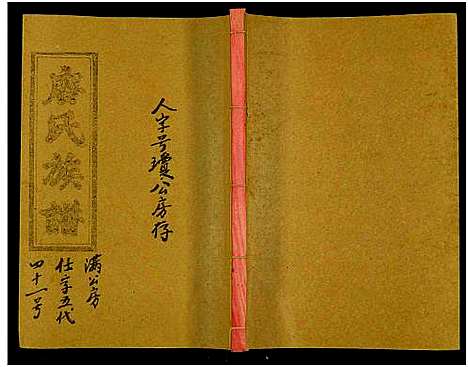 人字号瓊公房存
廖氏族譜
滿公房
仕字五代
四十一号